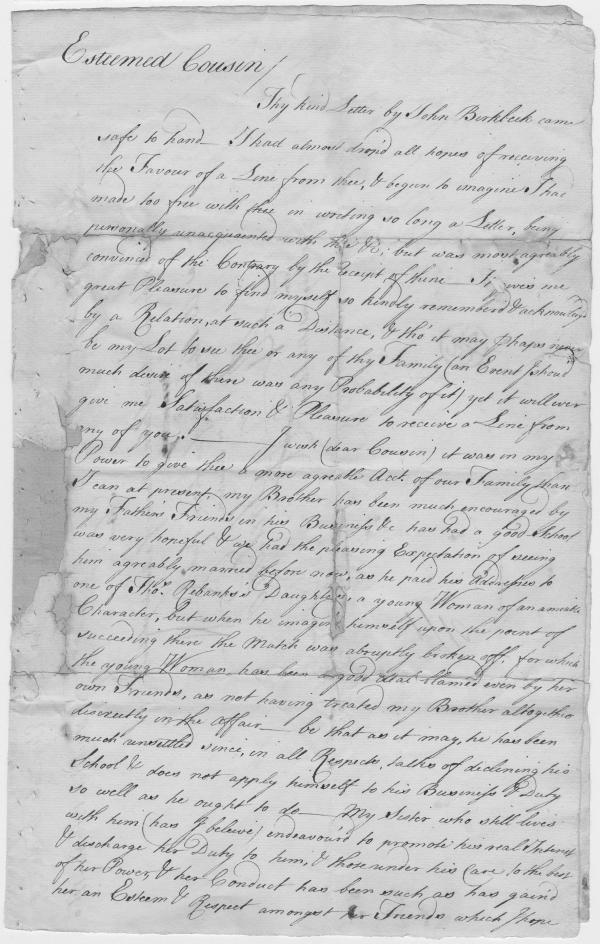 Esteemed Cousin/
Thy kind Letter by John Birkbeck came
safe to hand — I had almost drop'd all hopes of receiving
the Favour of a Line from thee, & begun to imagine I had
made too free with thee in writing so long a Letter, being
personally unacquainted with thee &c; but was most agreably
convinced of the Contrary by the Receipt of thine — It gives me
great Pleasure to find myself so kindly rememberd & acknowledg'd
by a Relation, at such a Distance, & tho' it may p'haps never
be my Lot to see thee or any of thy Family (an Event I shoud
much desire if there was any Probability of it) yet it will ever
give me Satisfaction & Pleasure to receive a Line from
any of you. — I wish (dear Cousin) it was in my
Power to give thee a more agreable Acct. of our Family than
I can at present, my Brother has been much encouraged by
my Father's Friends in his Business &c has had a good School
was very hopeful & we had the pleasing Expectation of seeing
him agreably married before now, as he paid his Addresses to
one of Thos. Rebanks's Daughters, a young Woman of an amiable
Character, but when he imagin'd himself upon the point of
succeeding there the Match was abruptly broken off, for which
the young Woman has been a good deal blamed even by her
own Friends, as not having treated my Brother altogether
discreetly in the affair — be that as it may, he has been
much unsettled since, in all Respects, talks of declining his
School & does not apply himself to his Business & Duty
so well as he ought to do — My Sister who still lives
with him (has I believe) endeavour'd to promote his real Interest
& discharge her Duty to him, & those under his Care to the best
of her Power, & her Conduct has been such as has gain'd
her an Esteem & Respect amongst her Friends which I hope